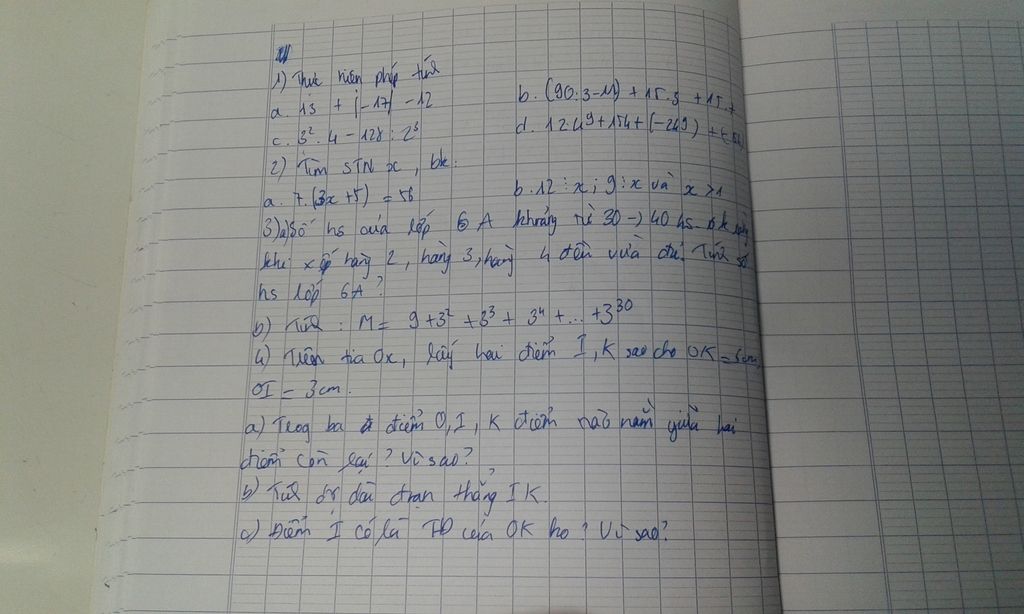 1) Thực hiện phép tính
a. 13 + |-17| - 12 b. (90:3-11) + 15.3 + 15.7
c. 3². 4 - 128 : 2³ d. 1249 + 154 + (-249) +
2) Tìm STN x, bk:
a. 7.(3x+5) = 56 b. 12 ⋮ x ; 9 ⋮ x và x >1
3)a) Số hs của lớp 6A khoảng từ 30 → 40 hs
khi xếp hàng 2, hàng 3, hàng 4 đều vừa đủ. Tính số
hs lớp 6A?
b) Tính : M = 9 + 3² + 3³ + 3⁴ + ... + 3³⁰
4) Trên tia Ox, lấy hai điểm I, K sao cho OK = cm,
OI = 3cm.
a) Trog ba điểm O, I, K điểm nào nằm giữa hai
điểm còn lại? Vì sao?
b) Tính độ dài đoạn thẳng IK.
c) Điểm I có là TĐ của OK ko? Vì sao?